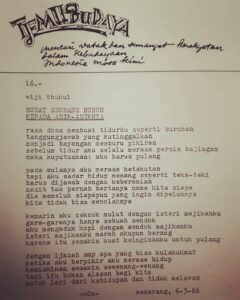 TEMU BUDAYA
mencari watak dan semangat kerakyatan
dalam kebudayaan
Indonesia masa kini
16.-
wiji thukul
SURAT SEORANG BURUH
KEPADA ADIK-ADIKNYA
rasa dosa membuat tidurku seperti buronan
tanggungjawab yang kutinggalkan
menjadi bayangan memburu pikiran
sebelum tidur aku selalu merasa persis bajingan
maka kuputuskan: aku harus pulang
pada mulanya aku merasa ketakutan
tapi aku sadar hidup memang seperti teka-teki
harus dijawab dengan keberanian
nasib tak pernah bertanya nama kita siapa
dia memeluk siapapun yang ingin dipeluknya
kita tidak bisa menolaknya
kemarin aku cekcok mulut dengan isteri majikanku
gara-garanya hanya sebuah sendok
aku mengaduk kopi dengan sendok majikanku
isteri majikanku marah akupun berang
karena itu semakin kuat keinginanku untuk pulang
dengan ijazah smp apa yang bisa kulakukan?
ketika aku berpikir aku harus hidup
kemiskinan semakin sewenang-wenang
tapi itu bukan alasan bagi kita
untuk lari dari kehidupan dan tidak melawan
-oOo-
semarang, 6-3-86